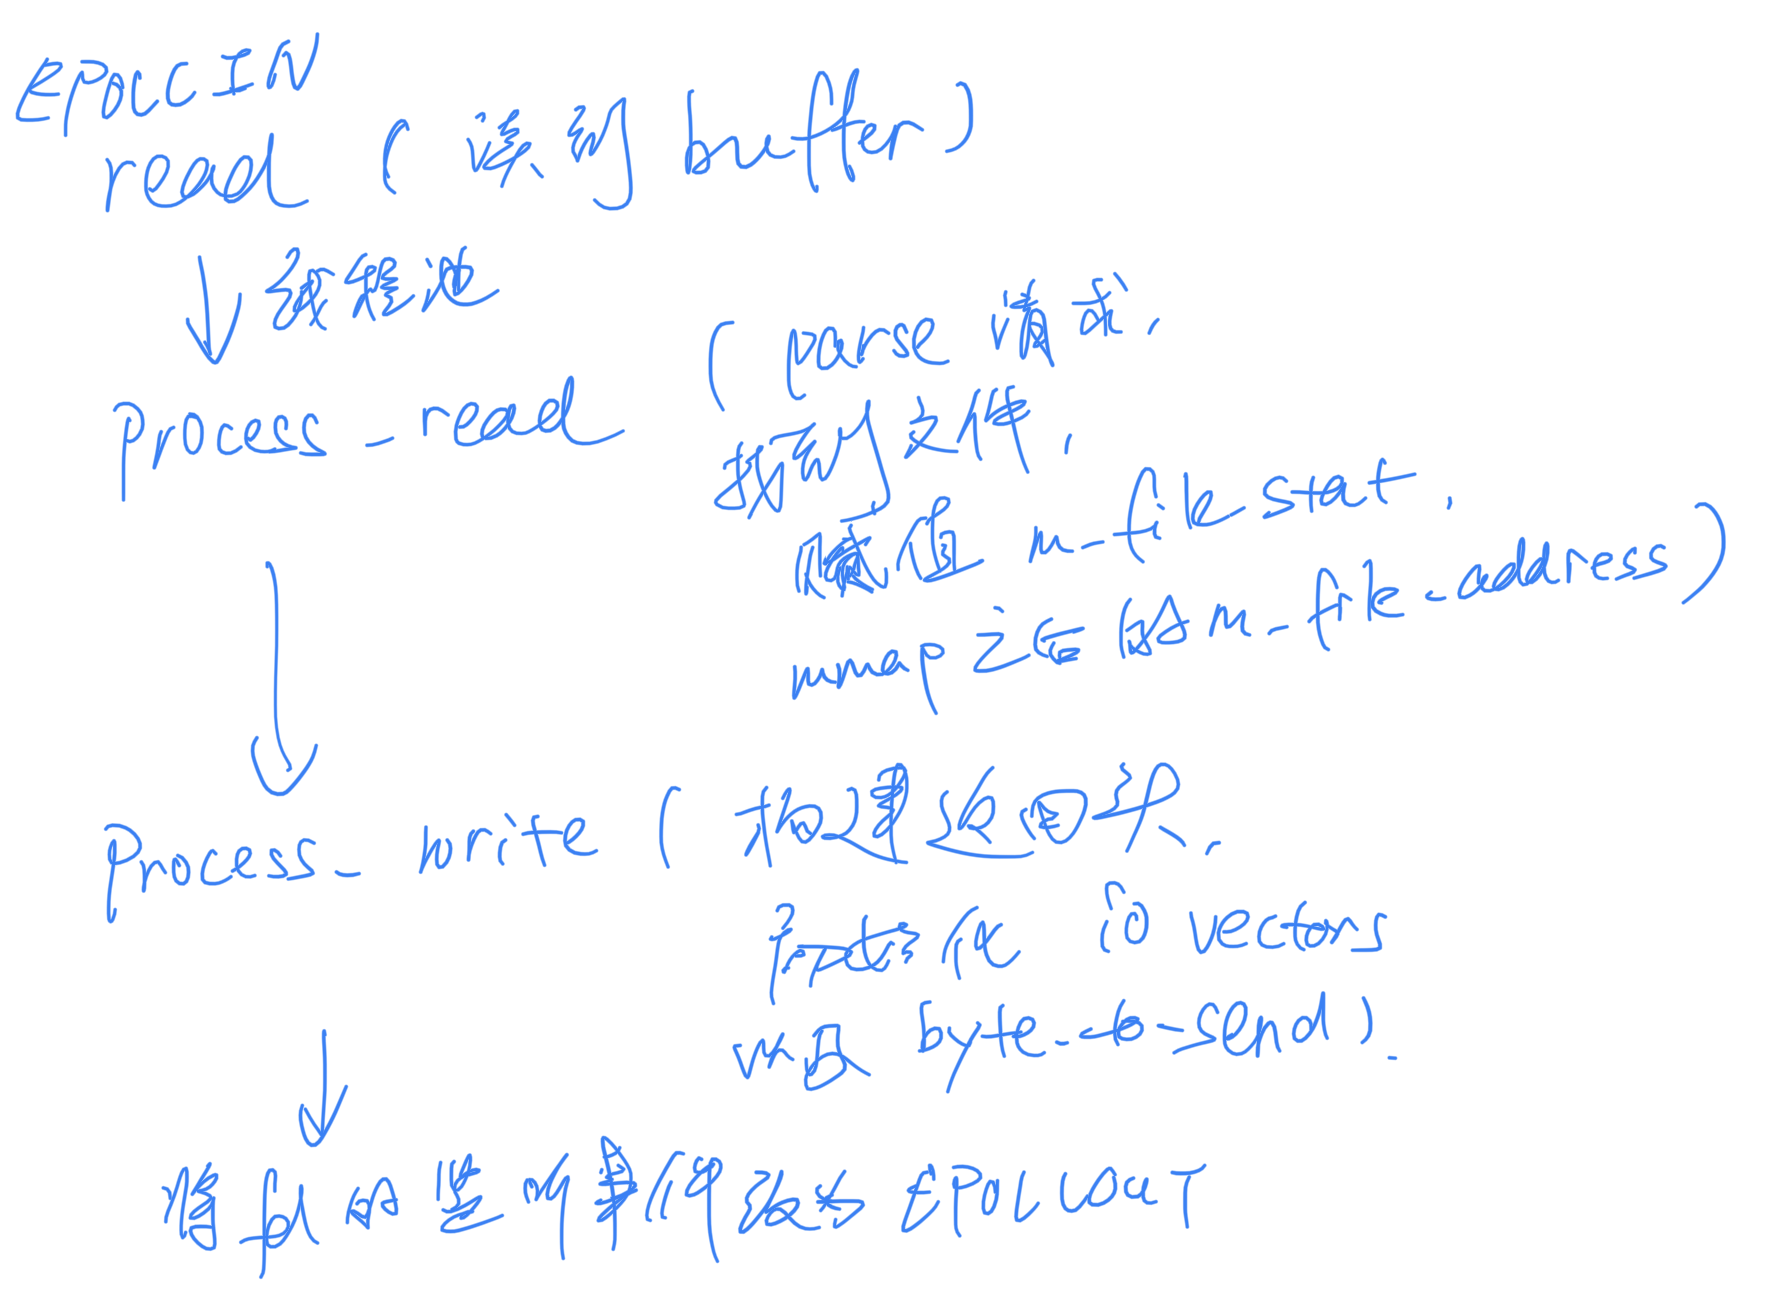 EPOLLIN
read (读到 buffer)
↓ 线程池
process_read (parse 请求,
找到文件,
赋值 m_file_stat,
mmap之后的 m_file_address)
↓
process_write (构建返回头,
初始化 io vectors
以及 byte_to_send).
↓
将 fd 的监听事件改为 EPOLLOUT